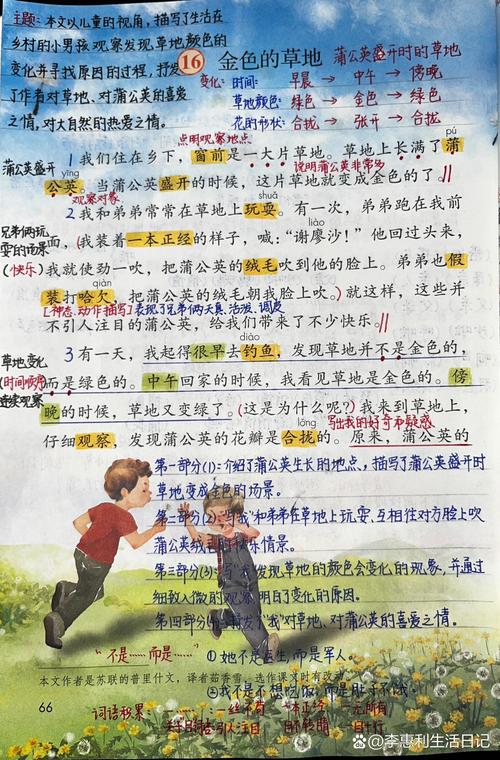 主题：本文以儿童的视角，描写了生活在
乡村的小男孩观察发现草地颜色的
变化并寻找原因的过程，抒发
了作者对草地、对蒲公英的喜爱
之情，对大自然的热爱之情。
16 金色的草地
蒲公英盛开时的草地
变化：时间：早晨→中午→傍晚
草地颜色：绿色→金色→绿色
花的形状：合拢→张开→合拢
点明观察地点
pú
蒲公英盛开
1 我们住在乡下，窗前是一大片草地。草地上长满了蒲
yīng
说明蒲公英非常多
公英。当蒲公英盛开的时候，这片草地就变成金色的了。
观察对象
shuǎ
2 我和弟弟常常在草地上玩耍。有一次，弟弟跑在我前
兄弟俩玩
耍的场景
(快乐)
liào
面，我装着一本正经的样子，喊：“谢廖沙！”他回过头来，
我就使劲一吹，把蒲公英的绒毛吹到他的脸上。弟弟也假
qiàn
装打哈欠，把蒲公英的绒毛朝我脸上吹。就这样，这些并
[神态、动作描写]表现了兄弟俩天真、活泼、调皮
不引人注目的蒲公英，给我们带来了不少快乐。
diào
草地变化
(时间顺序
连续观察
3 有一天，我起得很早去钓鱼，发现草地并不是金色的，
而是绿色的。中午回家的时候，我看见草地是金色的。傍
晚的时候，草地又变绿了。(这是为什么呢？)我来到草地上，
写出我的好奇和疑惑
lǒng
仔细观察，发现蒲公英的花瓣是合拢的。原来，蒲公英的
第一部分(1)：介绍了蒲公英生长的地点、描写了蒲公英盛开时
草地变成金色的场景。
第二部分(2)：写“我”和弟弟在草地上玩耍、互相往对方脸上吹
蒲公英绒毛的快乐情景。
第三部分(3)：写“我”发现草地的颜色会变化的现象，并通过
细致入微的观察明白了变化的原因。
第四部分(4)：抒发了“我”对草地、对蒲公英的喜爱之情。
“不是……而是……”
①她不是医生，而是军人。
本文作者是苏联的普里什文，译者茹香雪，选作课文时有改动。
②我不是不想吃饭，而是肚子不饿。
66
词语积累
一丝不苟
一本正经
一无所有
引人注目
一目十行
@李惠利生活日记